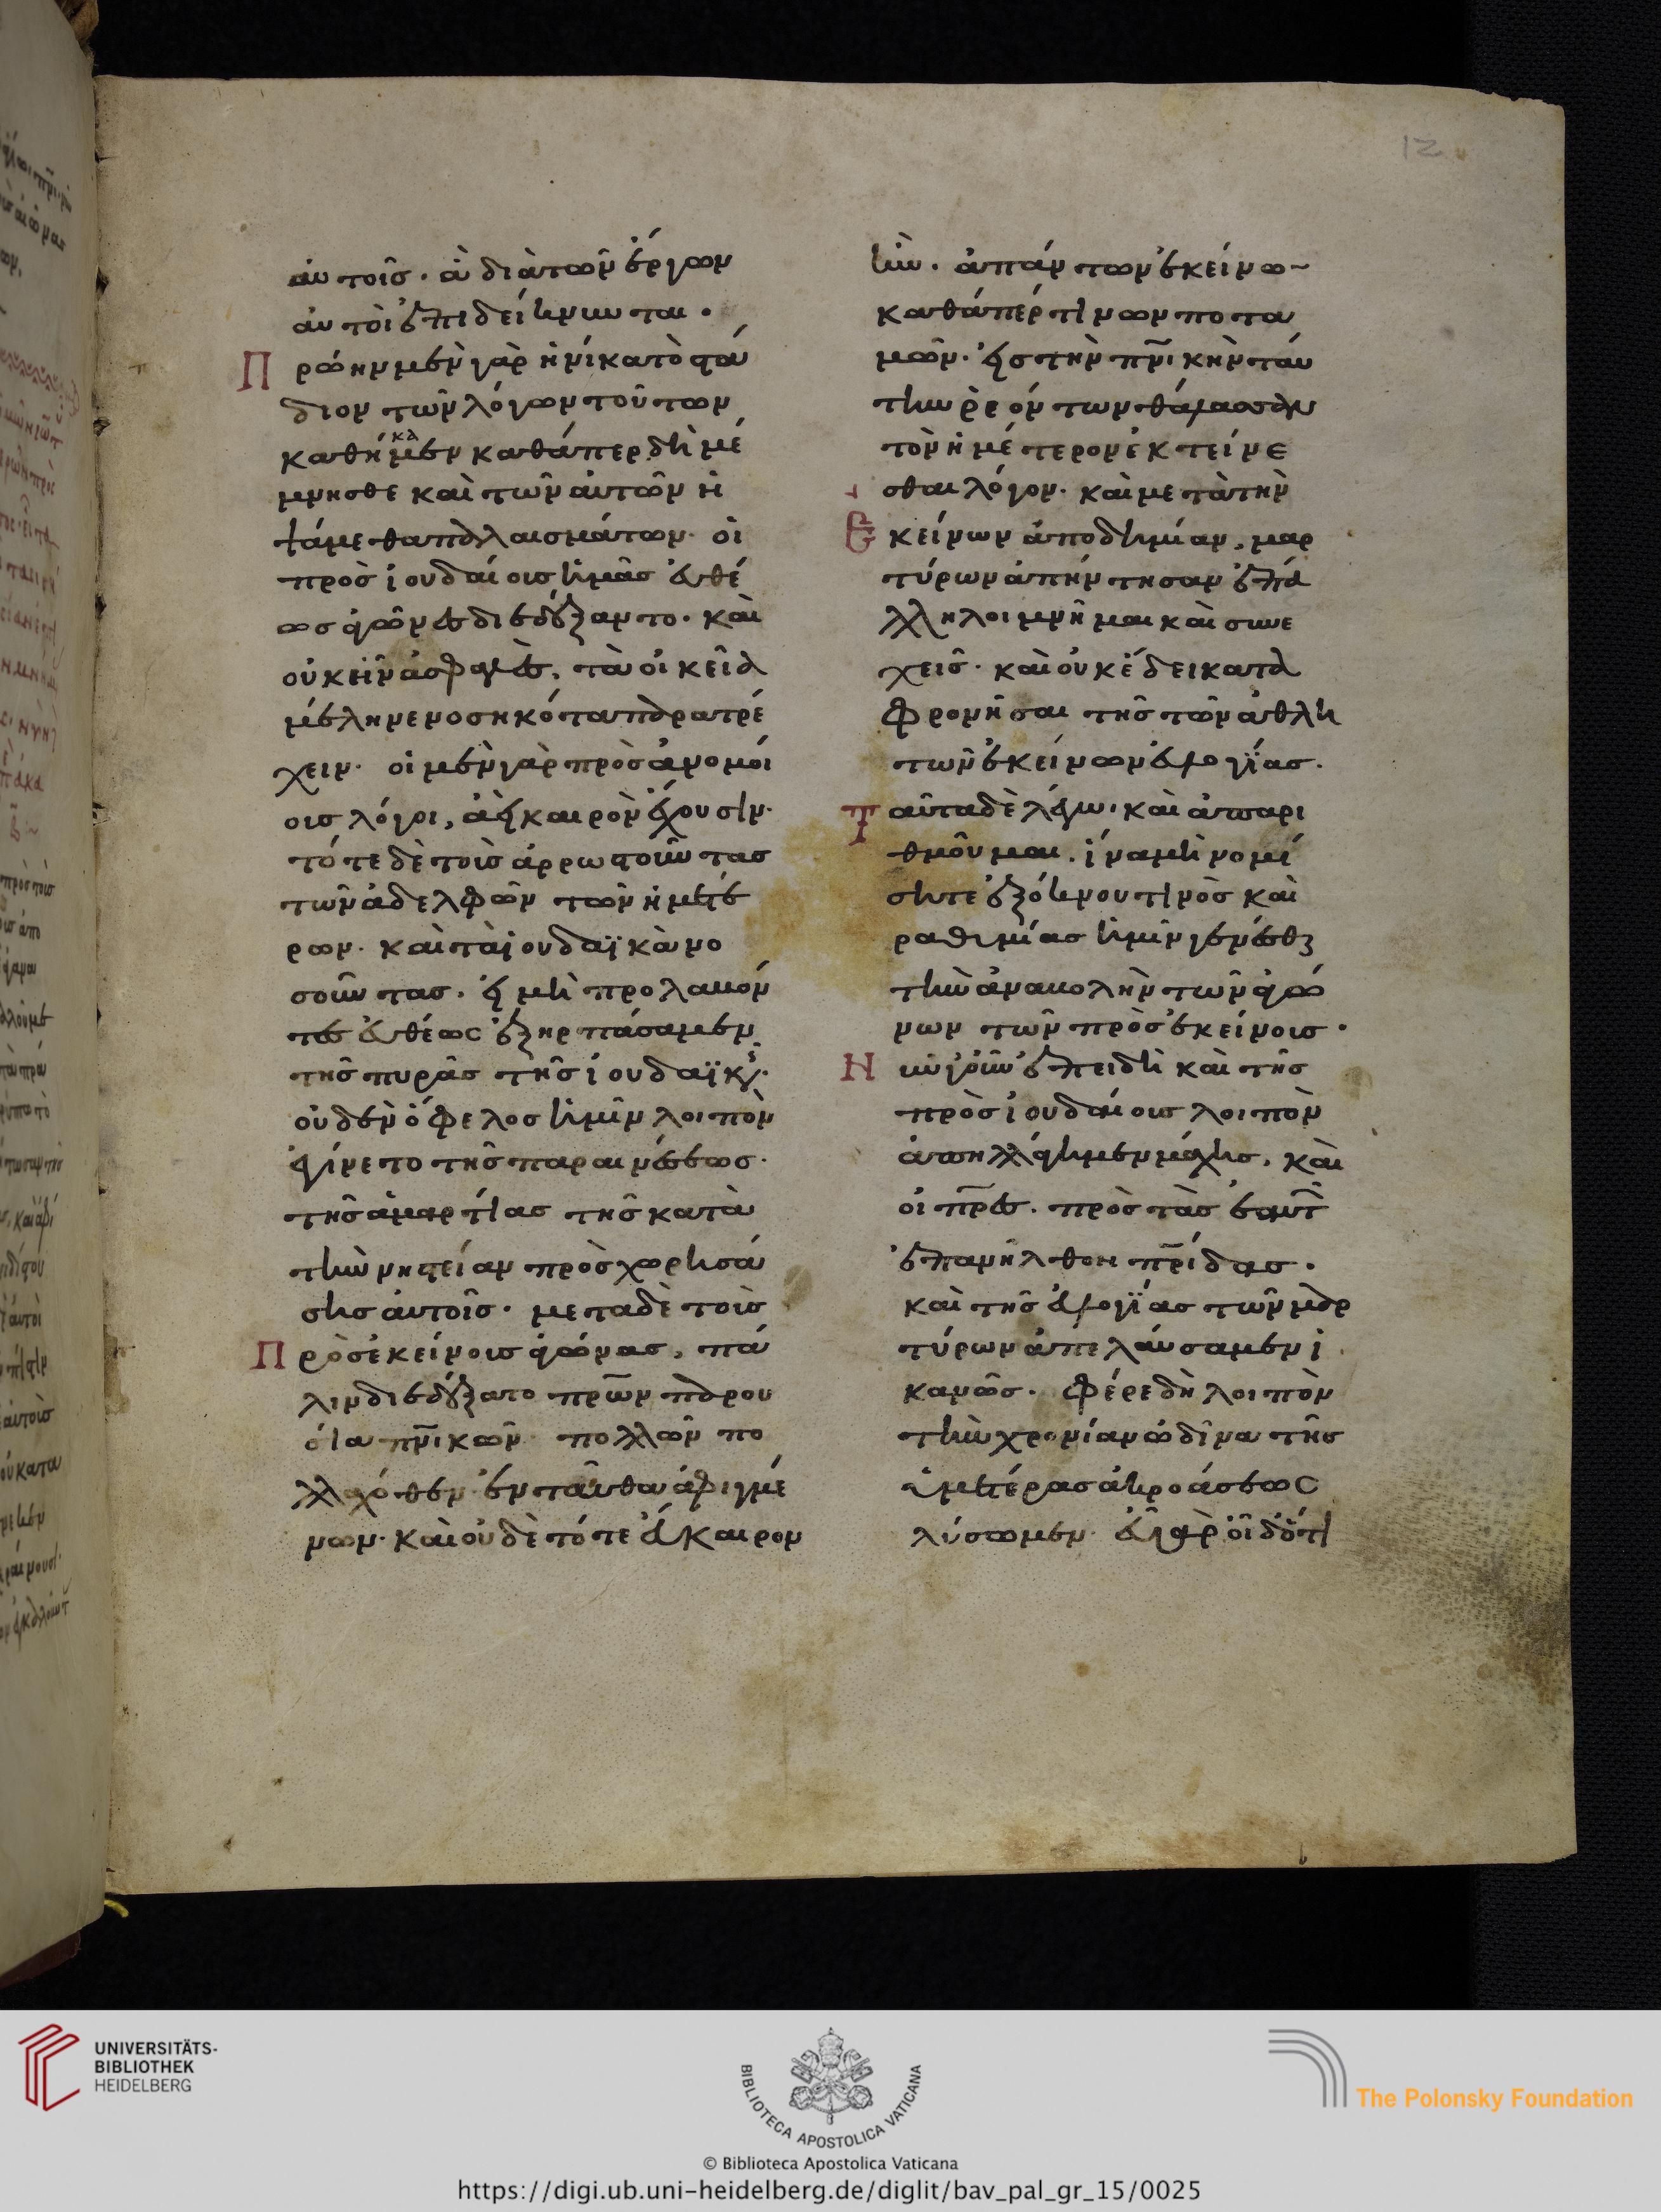 αὐτοῖς. ἃ διὰ τῶν ἔργων
αὐτοὶ ἐπιδείκνυνται.
Πρώην μὲν γὰρ ἡνίκα τὸ στά
διον τῶν λόγων τούτων
καθήκαμεν καθάπερ δὴ μέ
μνησθε καὶ τῶν αὐτῶν ἡ
πτάμεθα παλαισμάτων. οἱ
πρὸς ἰουδαίους ἡμᾶς εὐθέ
ως ἀγῶνες διεδέξαντο. καὶ
οὐκ ἦν ἀσφαλὲς, τὰ οἰκεῖα
μέλη νενοσηκότα παρατρέ
χειν. οἱ μὲν γὰρ πρὸς ἀνομοί
ους λόγοι, ἀεὶ καιρὸν ἔχουσιν.
τότε δὲ τοὺς ἀρρωστοῦντας
τῶν ἀδελφῶν τῶν ἡμετέ
ρων. καὶ τὰ ἰουδαϊκὰ νο
σοῦντας. εἰ μὴ προλαβόν
τες εὐθέως ἐξηρπάσαμεν
τῆς πυρᾶς τῆς ἰουδαϊκῆς.
οὐδὲν ὄφελος ἡμῖν λοιπὸν
ἐγίνετο τῆς παραινέσεως.
τῆς ἁμαρτίας τῆς κατὰ
τὴν νηστείαν προσχωρησά
σης αὐτοῖς. μετα δὲ τοὺς
Πρὸς ἐκείνους ἀγῶνας, πά
λιν διεδέξατο πρ̅ων παρου
σία πν̅ικῶν πολλῶν πο
λλαχόθεν ἐνταῦθα ἀφιγμέ
νων. καὶ οὐδὲ τότε εὔκαιρον
ἦν. ἁπάντων ἐκείνω~
καθάπέρ τινων ποτα
μῶν. εἰς τὴν πν̅ικὴν ταύ
την ῥεόντων θάλασσαν
τὸν ἡμέτερον ἐκτείνε
σθαι λόγον. καὶ μετὰ τὴν
Ἐκείνων ἀποδημίαν, μαρ
τύρων ἀπήντησαν ἐπά
λληλοι μνῆμαι καὶ συνε
χεῖς. καὶ οὐκ ἔδει κατα
φρονῆσαι τῆς τῶν ἀθλη
τῶν ἐκείνων εὐφημίας.
Ταῦτα δὲ λέγω. καὶ ἀπαρι
θμοῦμαι. ἵνα μὴ νομί
σητε ἐξ ὄκνου τινὸς καὶ
ραθυμίας ἡμῖν γενέσθαι
τὴν ἀναβολὴν τῶν ἀγώ
νων τῶν πρὸς ἐκείνους.
Νῦν γοῦν ἐπειδὴ καὶ τῆς
πρὸς ἰουδαίους λοιπὸν
ἀπηλλάγημεν μάχης, καὶ
οἱ πρ̅ες. πρὸς τὰς ἑαυτῶν
ἐπανῆλθον πρ̅ίδας.
καὶ τῆς εὐφημίας τῶν μαρ
τύρων ἀπελαύσαμεν ἱ
κανῶς. φέρε δὴ λοιπὸν
τὴν χρονίαν ὠδῖνα τῆς
ὑμετέρας ἀκροάσεως
λύσωμεν. εὖ γὰρ οἶδ ὅτι
12
UNIVERSITÄTS-
BIBLIOTHEK
HEIDELBERG
BIBLIOTECA APOSTOLICA VATICANA
The Polonsky Foundation
© Biblioteca Apostolica Vaticana
https://digi.ub.uni-heidelberg.de/diglit/bav_pal_gr_15/0025